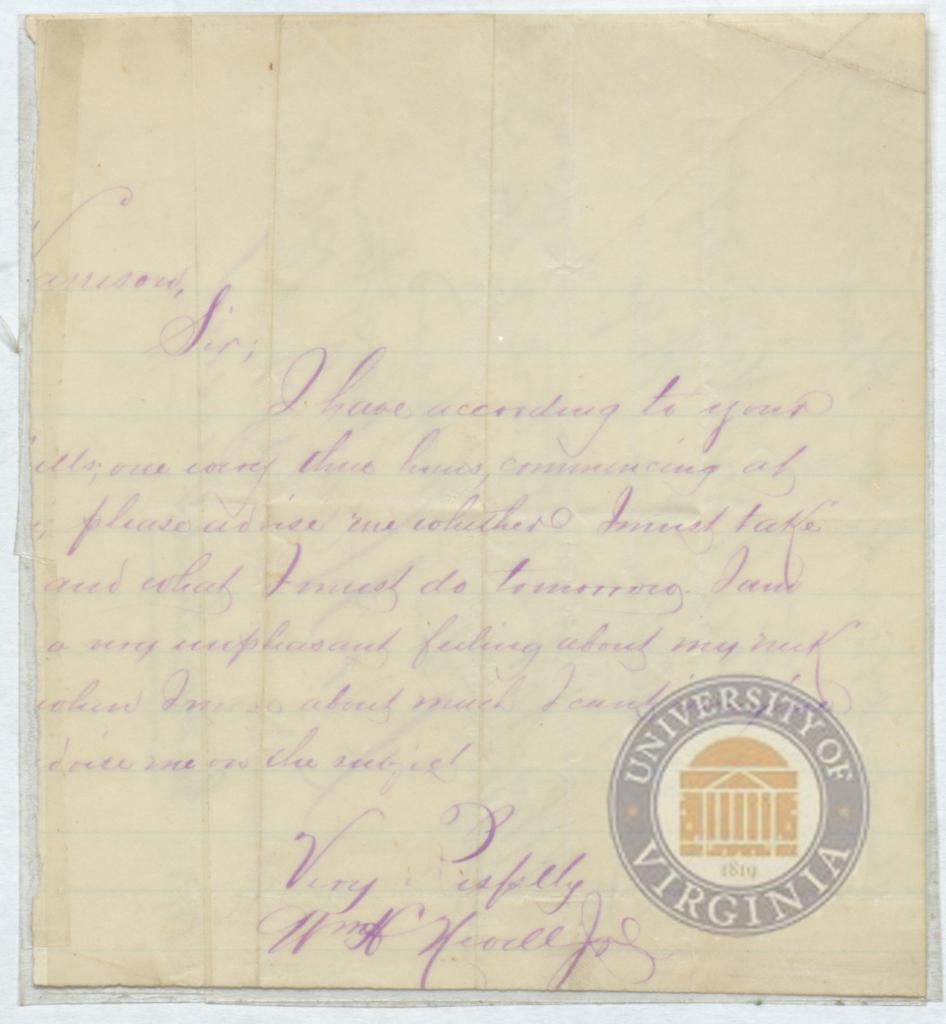 arrison,
Sir;
I have according to your
ills; one every three hours, commencing at
please advise me whether I must take
and what I must do tomorrow. I am
a very unpleasant feeling about my neck
when I move about much I cant
dvise me on the subject
Very Respflly
Wm H Jr
UNIVERSITY OF VIRGINIA
1819